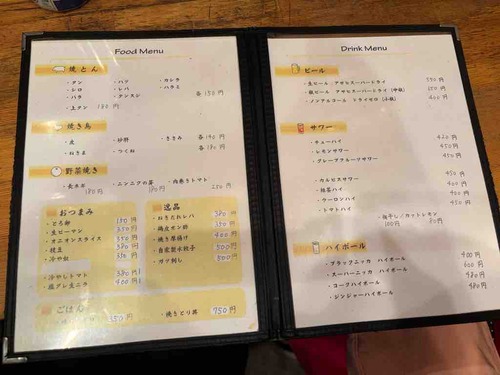 Food Menu
焼とん
・タン ・ハツ ・カシラ
・シロ ・レバ ・ハラミ
・バラ ・テンカン 各150円
・上タン 180円
焼き鳥
・皮 ・砂肝 ・ささみ 各190円
・ねぎま ・つくね 各180円
野菜焼き
・長ネギ 180円 ・ニンニクの芽 180円 ・肉巻きトマト 250円
おつまみ
・とろ卵
・生ピーマン 350円
・オニオンスライス 350円
・枝豆 380円
・冷や奴 350円
・冷やしトマト 380円
・塩ダレ生ニラ 400円
逸品
・ねぎだれレバ 380円
・鶏皮ポン酢 350円
・焼き厚揚げ 400円
・自家製水餃子 500円
・ガツ刺し 500円
ごはん
350円 ・焼きとり丼 750円
Drink Menu
ビール
・生ビール アサヒスーパードライ 550円
・瓶ビール アサヒスーパードライ(中瓶)
・ノンアルコール ドライゼロ(小瓶) 400円
サワー
・チューハイ 420円
・レモンサワー 450円
・グレープフルーツサワー 450円
・カルピスサワー 450円
・抹茶ハイ 400円
・ウーロンハイ 400円
・トマトハイ 450円
・梅干し/カットレモン
100円 80円
ハイボール
・ブラックニッカ ハイボール 400円
・スーパーニッカ ハイボール 600円
・コークハイボール 480円
・ジンジャーハイボール 480円